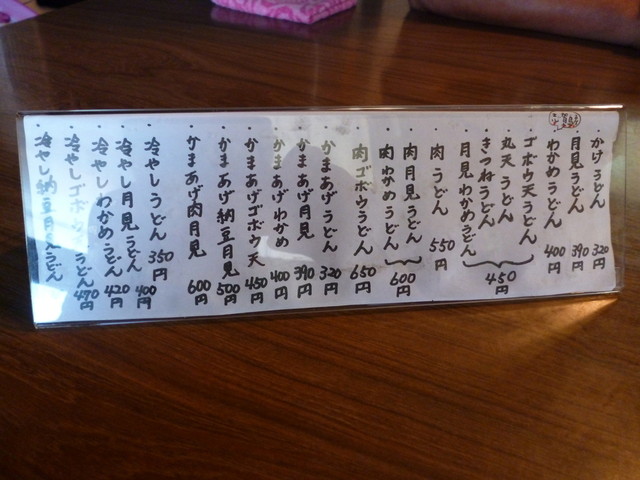 かけうどん 320
月見うどん 390円
わかめうどん 400円
ゴボウ天うどん
丸天うどん
きつねうどん
月見わかめうどん
450円
肉うどん 550円
肉月見うどん
肉わかめうどん
600円
肉ゴボウうどん 650円
かまあげうどん 320円
かまあげ月見 390円
かまあげわかめ 400円
かまあげゴボウ天 450円
かまあげ納豆月見 500円
かまあげ肉月見 600円
冷やしうどん 350円
冷やし月見うどん 400円
冷やしわかめうどん 420円
冷やしゴボウ天うどん 490円
冷やし納豆月見うどん